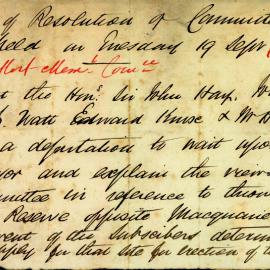 of Resolution of Committe
held on Tuesday 19 Septr
Mort Memt. Comee
t the Honl. Sir John Hay. W
J. Watt Edward Knox & Mr
a deputation to wait upo
yor and explain the views
mmittee in reference to the
Reserve opposite Macquarie
vent of the Subscribers determ
apply for that site for erection of